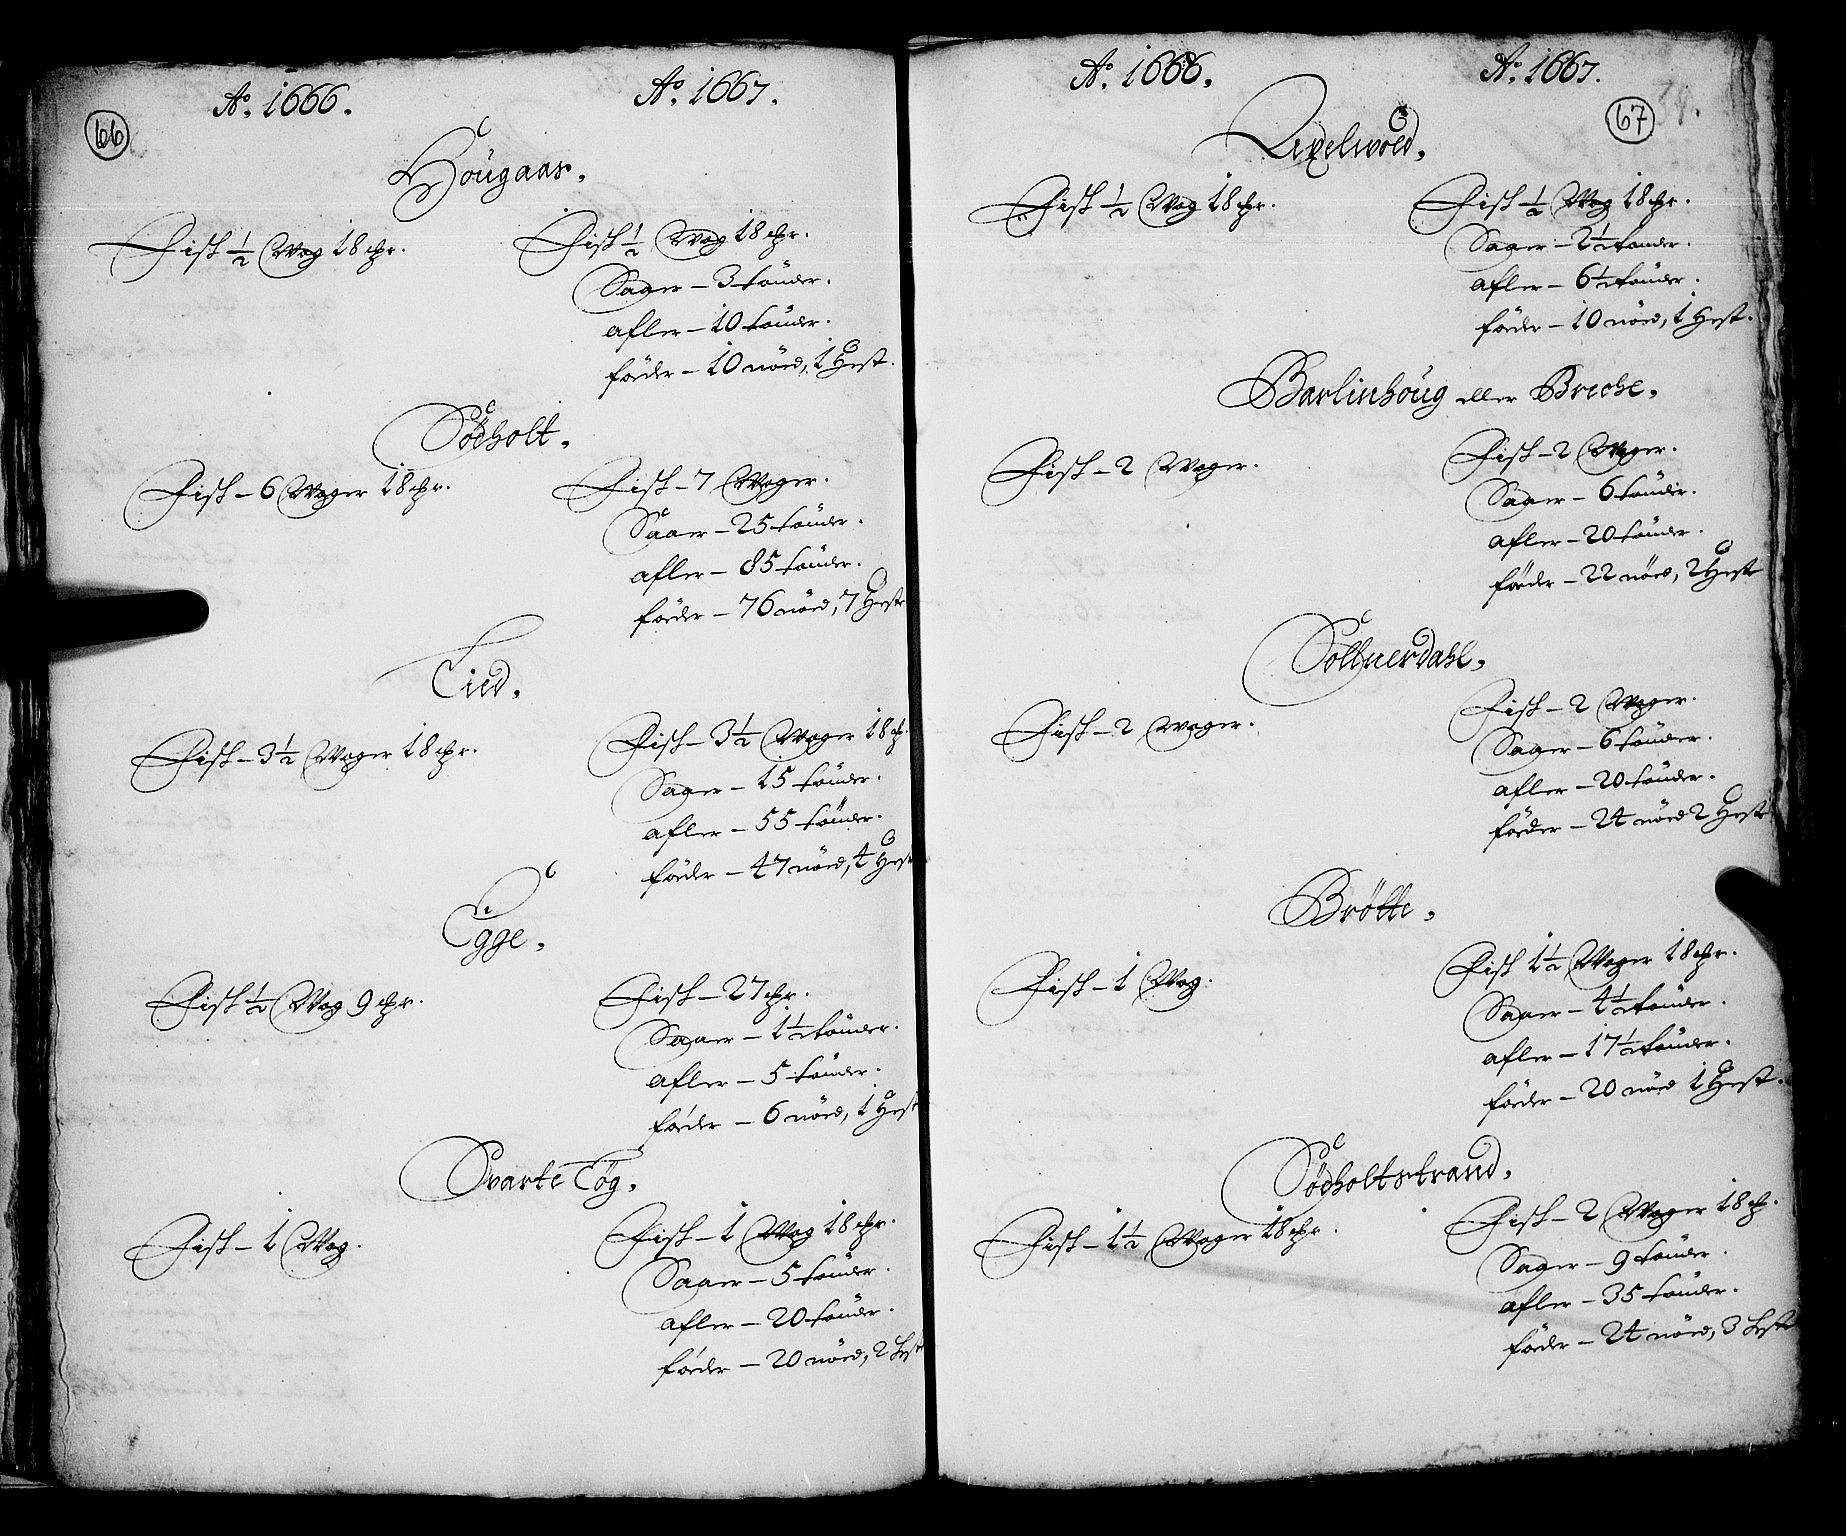 66
Ao. 1666. Ao. 1667.
Hougaas.
Fisk ½ Wog 18 mkr. Fisk ½ Wog 18 mkr.
Saaer – 3 tönder.
afler – 10 tönder.
föder – 10 nöed, 1 Hest.
Södholt.
Fisk – 6 Woger 18 mkr. Fisk – 7 Woger.
Saaer – 25 tönder.
afler – 85 tönder.
föder – 76 nöed, 7 Heste
Tied.
Fisk – 3½ Woger 18 mkr. Fisk – 3½ Woger 18 mk.
Saaer – 15 tönder.
afler – 55 tönder.
föder – 47 nöed, 4 Hest
Egge.
Fisk ½ Wog 9 mkr. Fisk – 27 mkr.
Saaer – 1½ tönder.
afler – 5 tönder.
föder – 6 nöed, 1 Hest
Svarte Tög.
Fisk – 1 Wog. Fisk – 1 Wog 18 mkr.
Saaer – 5 tönder.
afler – 20 tönder.
föder – 20 nöed, 2 Hest
Ao. 1666. Ao. 1667.
67
Fisk ½ Wog 18 mkr. Fisk ½ Wog 18 mkr.
Saaer – 2½ tönder.
afler – 6½ tönder.
föder – 10 nöed, 1 Hest.
Barlinhoug eller Breche.
Fisk – 2 Woger. Fisk – 2 Woger.
Saaer – 6 tönder.
afler – 20 tönder.
föder – 22 nöed, 2 Heste
Sollnerdahl.
Fisk – 2 woger. Fisk – 2 Woger.
Saaer – 6 tönder.
afler – 20 tönder.
föder – 24 nöed 2 Heste
Brötte.
Fisk – 1 Wog. Fisk 1½ Woger 18 mkr.
Saaer – 4½ tönder.
afler – 17½ tönder.
föder – 20 nöed 1 Hest.
Södholtstrand.
Fisk – 1½ Woger 18 mkr. Fisk – 2 Woger 18 mk.
Saaer – 9 tönder.
afler – 35 tönder.
föder – 24 nöed, 3 Heste